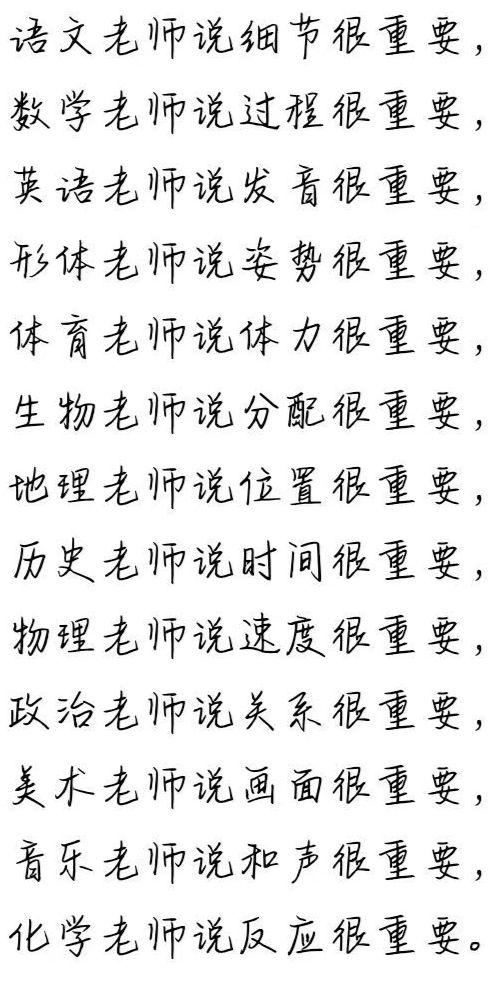 语文老师说细节很重要，
数学老师说过程很重要，
英语老师说发音很重要，
形体老师说姿势很重要，
体育老师说体力很重要，
生物老师说分配很重要，
地理老师说位置很重要，
历史老师说时间很重要，
物理老师说速度很重要，
政治老师说关系很重要，
美术老师说画面很重要，
音乐老师说和声很重要，
化学老师说反应很重要。